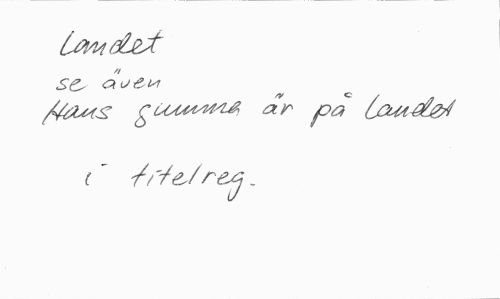 Landet
se även
Hans gumma är på landet
i titelreg.